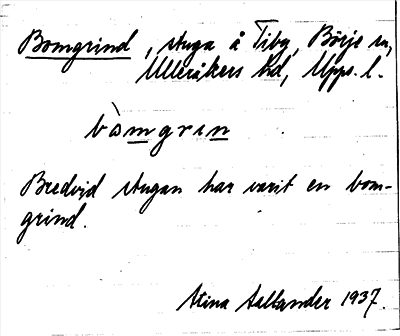 Bomgrind, stuga å Tiby, Börje sn,
Ulleråkers hd, Upps. l.
bòmgrın
Bredvid stugan har varit en bom-
grind.
Stina Sellander 1937.